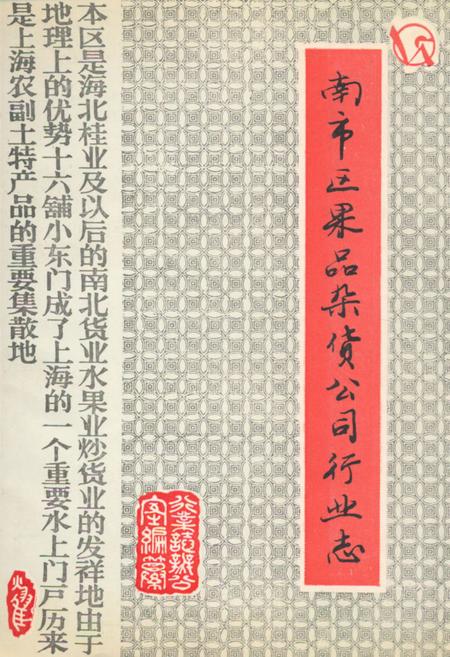 南市区果品杂货公司行业志
本区是海北桂业及以后的南北货业水果业炒货业的发祥地由于
地理上的优势十六舖小东门成了上海的一个重要水上门户历来
是上海农副土特产品的重要集散地
行業誌辦公
室編纂